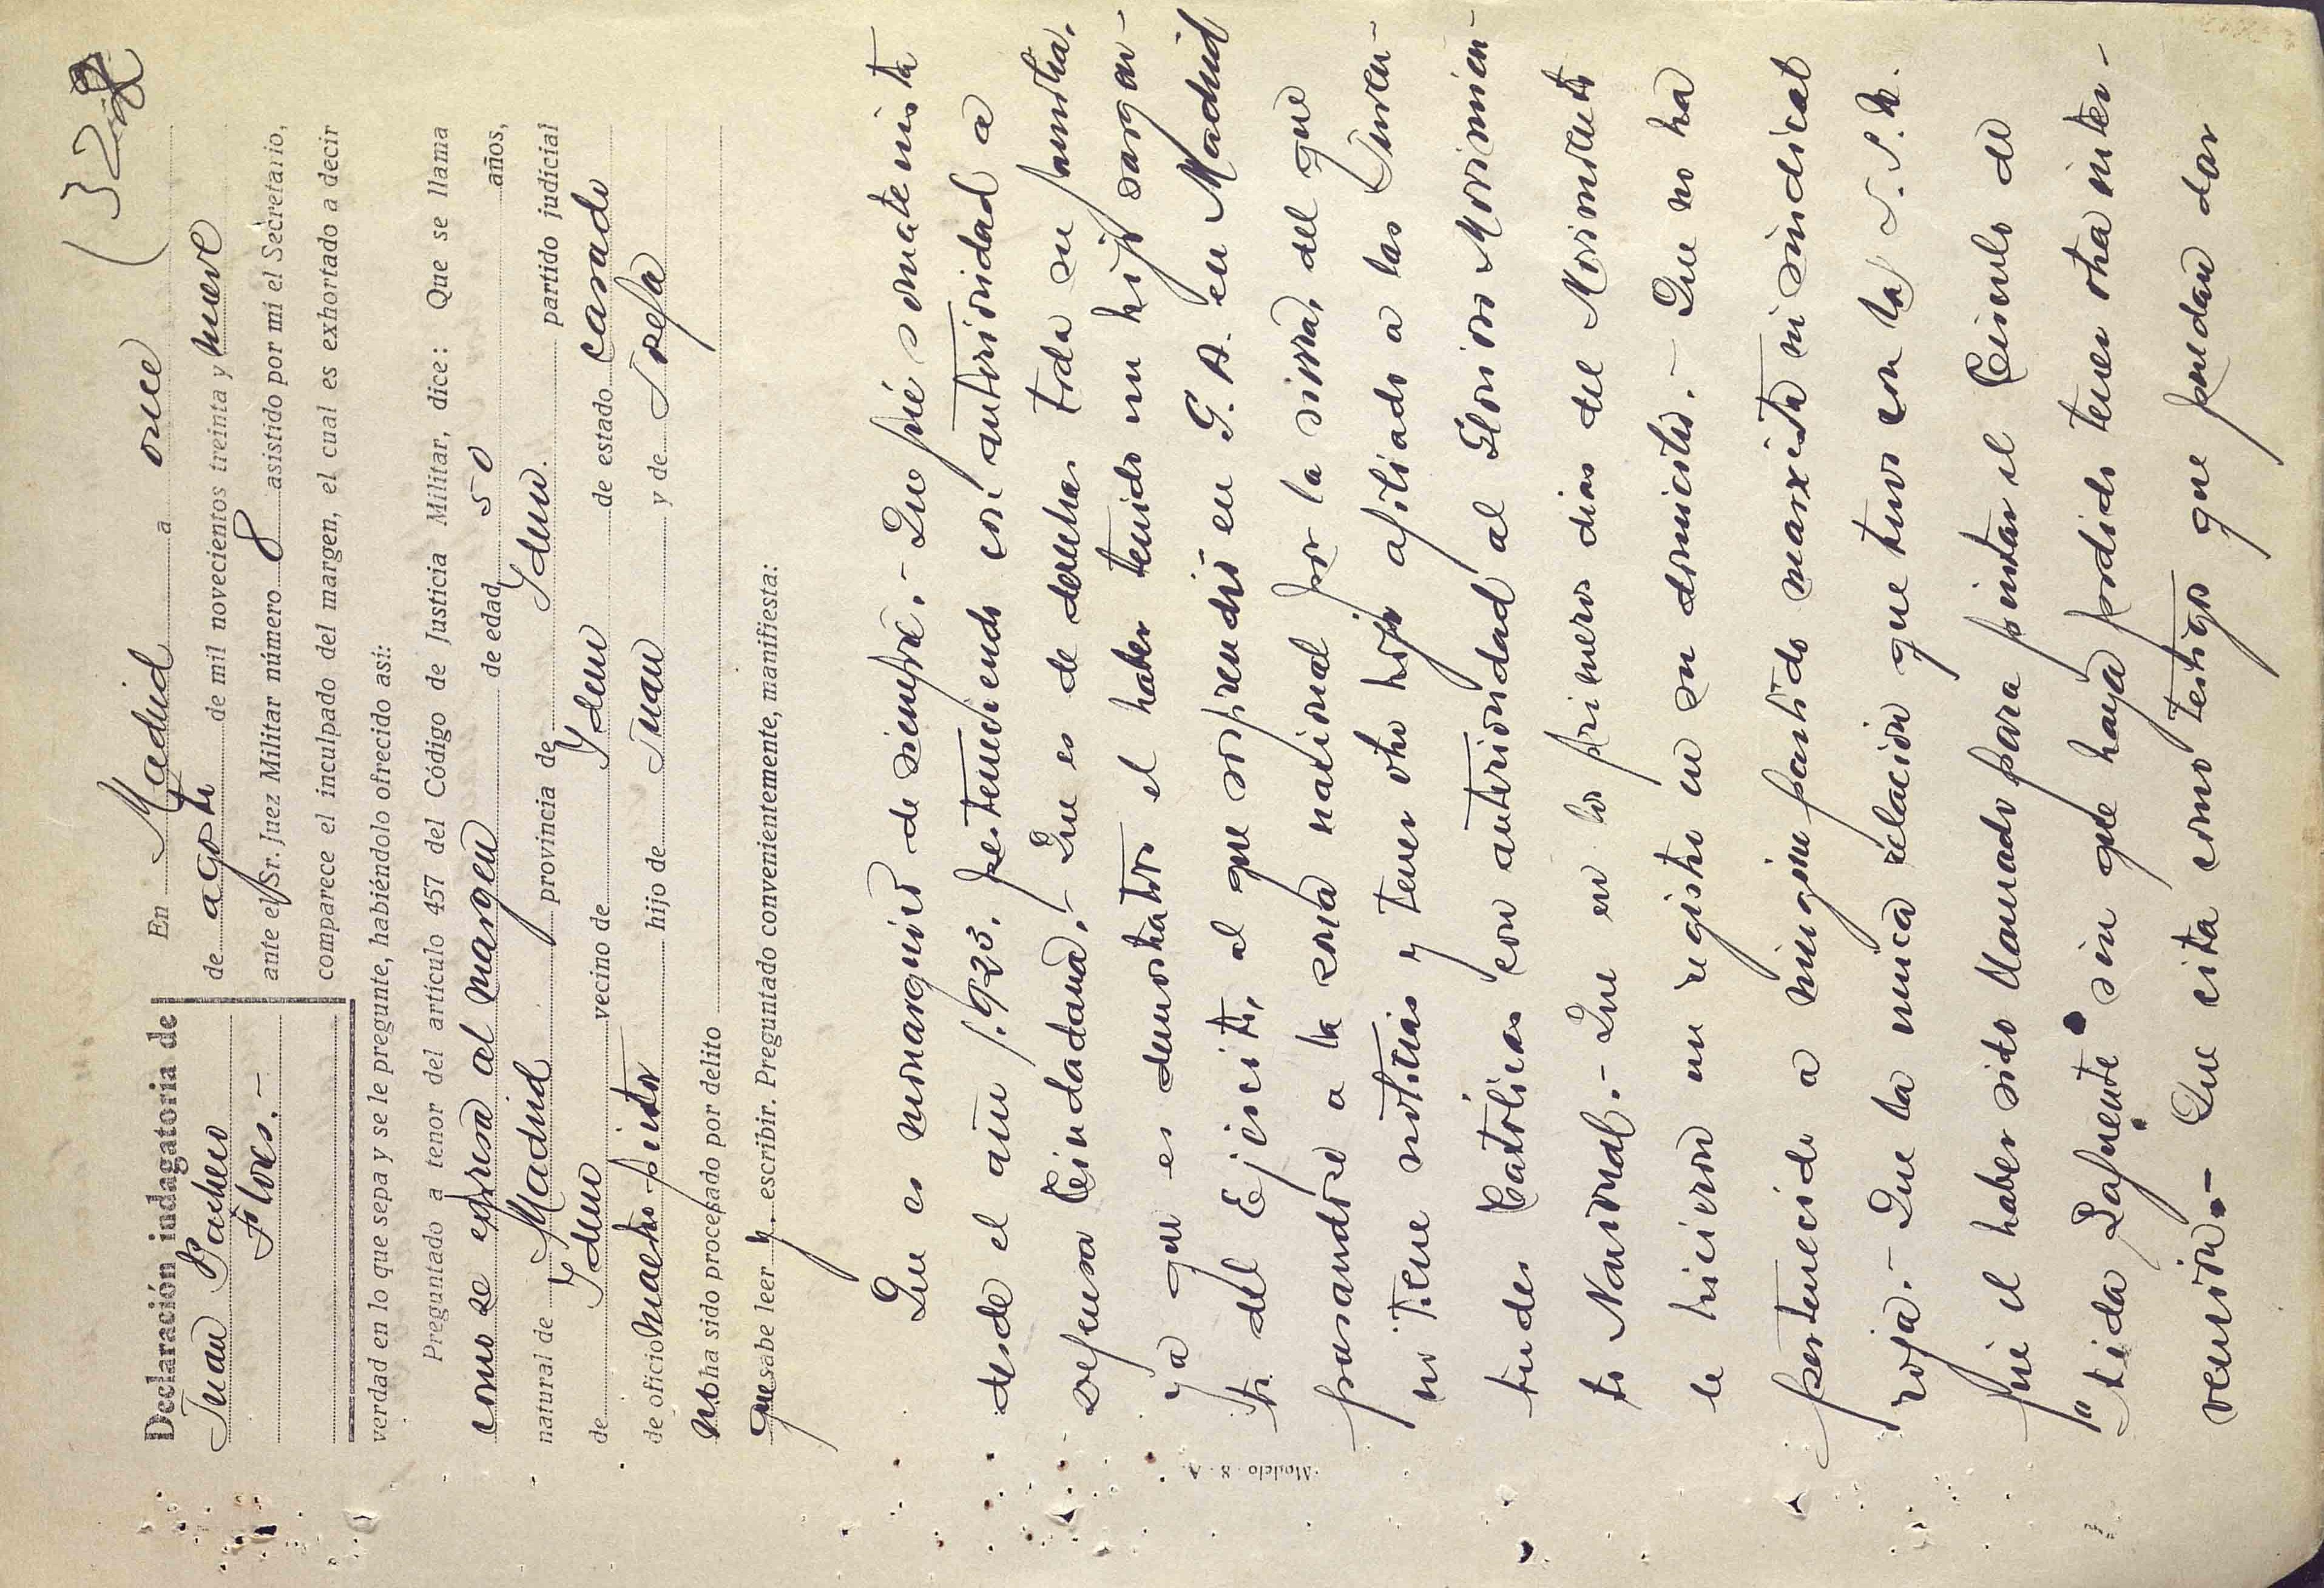 (32
Declaración indagatoria de
Juan Pacheco
Flores.-
En Madrid a once
de agosto de mil novecientos treinta y nueve
ante el Sr. Juez Militar número 8 asistido por mi el Secretario,
comparece el inculpado del margen, el cual es exhortado a decir
verdad en lo que sepa y se le pregunte, habiéndolo ofrecido asi:
Preguntado a tenor del artículo 457 del Código de Justicia Militar, dice: Que se llama
como se expresa al margen de edad 50 años,
natural de Madrid provincia de Idem. partido judicial
de Idem vecino de Idem de estado casado
de oficio maestro pintor hijo de Juan y de Josefa
no ha sido procesado por delito
que sabe leer y escribir. Preguntado convenientemente, manifiesta:
Que es monarquico de siempre.- Que fué somatenista
desde el año 1.923. perteneciendo con anterioridad a
defensa Ciudadana.- Que es de derechas toda su familia.
ya que es demostrativo el haber tenido un hijo sargen-
to del Ejercito, al que sorprendió en G. A. en Madrid
pasandose a la zona nacional por la sierra, del que
no tiene noticias y tener otro hijo afiliado a las Juven-
tudes Católicas con anterioridad al Glorioso Movimien-
to Nacional.- Que en los primeros dias del Movimiento
le hicieron un registro en su domicilio.- Que no ha
pertenecido a ningún partido marxista ni sindical
rojo.- Que la unica relación que tuvo con la
fué el haber sido llamado para pintar el Cinulo de
la tida Lafuente sin que haya podido tener otra inter-
vención.- Que cita como testigos que puedan dar
Modelo 8